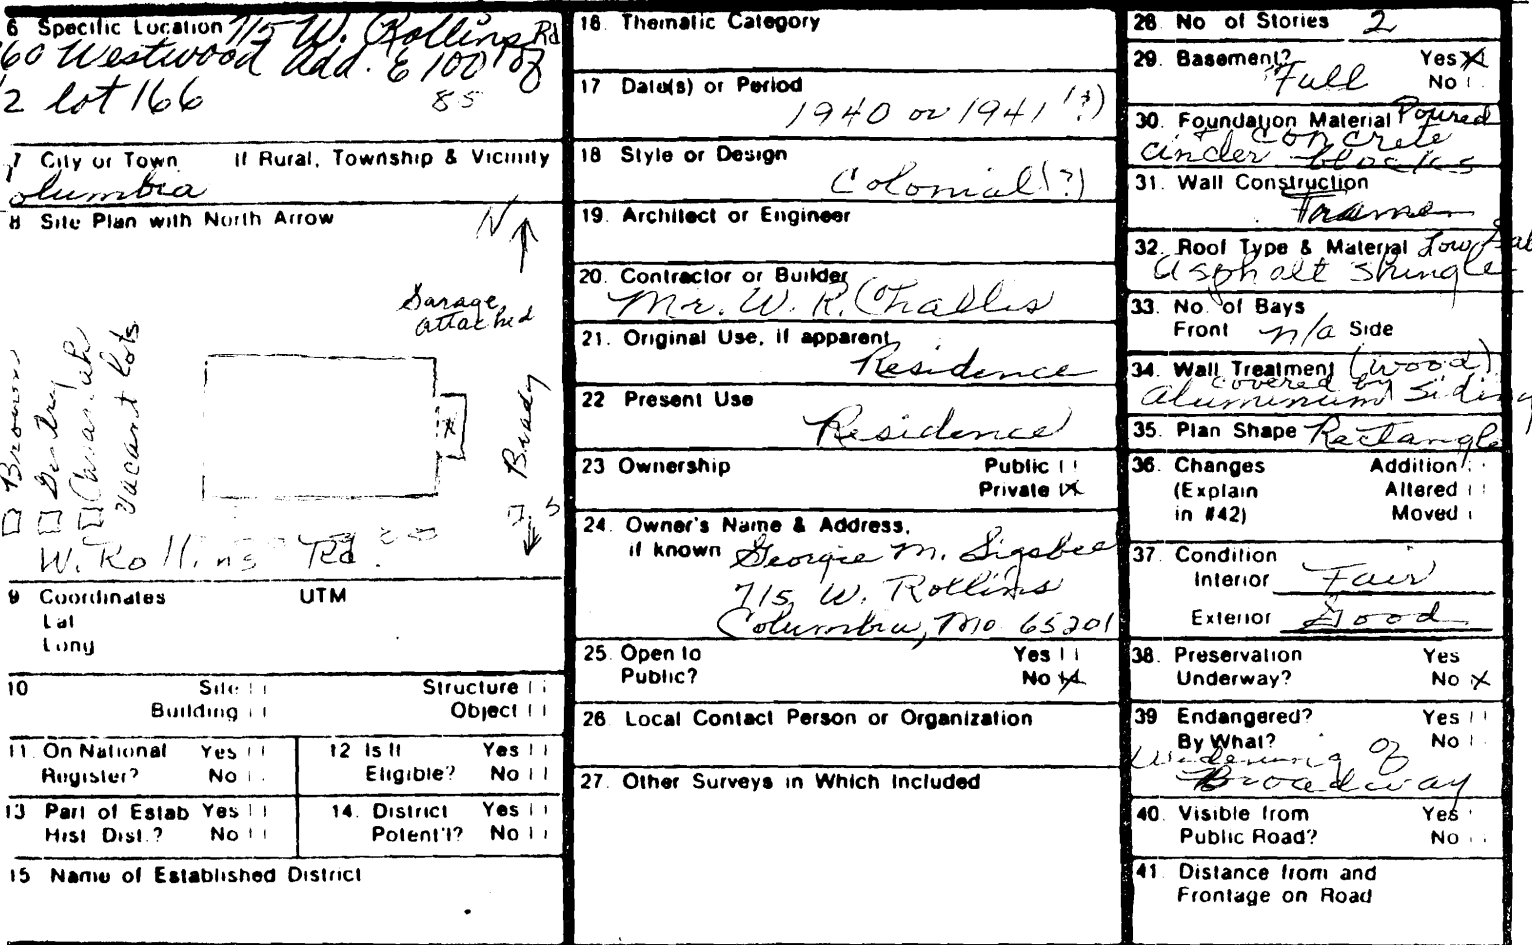 6 Specific Location 715 W. Rollins Rd
60 Westwood Add. E 100' of
1/2 lot 166 85
7 City or Town If Rural, Township & Vicinity
olumbia
8 Site Plan with North Arrow
N
Garage
attached
Brown
Vacant lots
Brady
S
W. Rollins Rd.
9 Coordinates UTM
Lat
Long
10 Site Structure
Building Object
11. On National Yes
Register? No
12 Is It Yes
Eligible? No
13 Part of Estab Yes
Hist Dist.? No
14. District Yes
Potent'l? No
15 Name of Established District
16. Thematic Category
17 Date(s) or Period
1940 or 1941 (?)
18 Style or Design
Colonial (?)
19. Architect or Engineer
20. Contractor or Builder
Mr. W. R. Challis
21. Original Use, if apparent
Residence
22 Present Use
Residence
23 Ownership Public
Private X
24. Owner's Name & Address,
if known Georgie M. Sigsbee
715 W. Rollins
Columbia, Mo 65201
25. Open to Yes
Public? No X
26. Local Contact Person or Organization
27. Other Surveys in Which Included
28. No of Stories 2
29. Basement? Yes X
Full No
30. Foundation Material Poured
concrete
cinder blocks
31. Wall Construction
Frame
32. Roof Type & Material Low Gab
asphalt shingle
33. No. of Bays
Front n/a Side
34. Wall Treatment (wood)
covered by
aluminum siding
35. Plan Shape Rectangle
36. Changes Addition
(Explain Altered
in #42) Moved
37. Condition
Interior Fair
Exterior Good
38. Preservation Yes
Underway? No X
39 Endangered? Yes
By What? No
Widening of
Broadway
40. Visible from Yes
Public Road? No
41. Distance from and
Frontage on Road